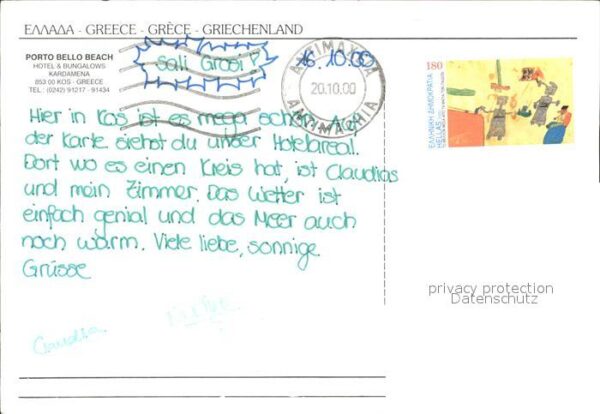 ΕΛΛΑΔΑ - GREECE - GRÈCE - GRIECHENLAND
PORTO BELLO BEACH
HOTEL & BUNGALOWS
KARDAMENA
853 00 KOS - GREECE
TEL: (0242) 91217 - 91434
Sali Grosi!
16.10.00
20.10.00
ΑΝΤΙΜΑΧΕΙΑ
180
ΕΛΛΗΝΙΚΗ ΔΗΜΟΚΡΑΤΙΑ
HELLAS
Hier in Kos ist es mega schön. Auf
der Karte siehst du unser Hotelareal.
Dort wo es einen Kreis hat, ist Claudias
und mein Zimmer. Das Wetter ist
einfach genial und das Meer auch
noch warm. Viele liebe, sonnige
Grüsse
Claudia
privacy protection
Datenschutz